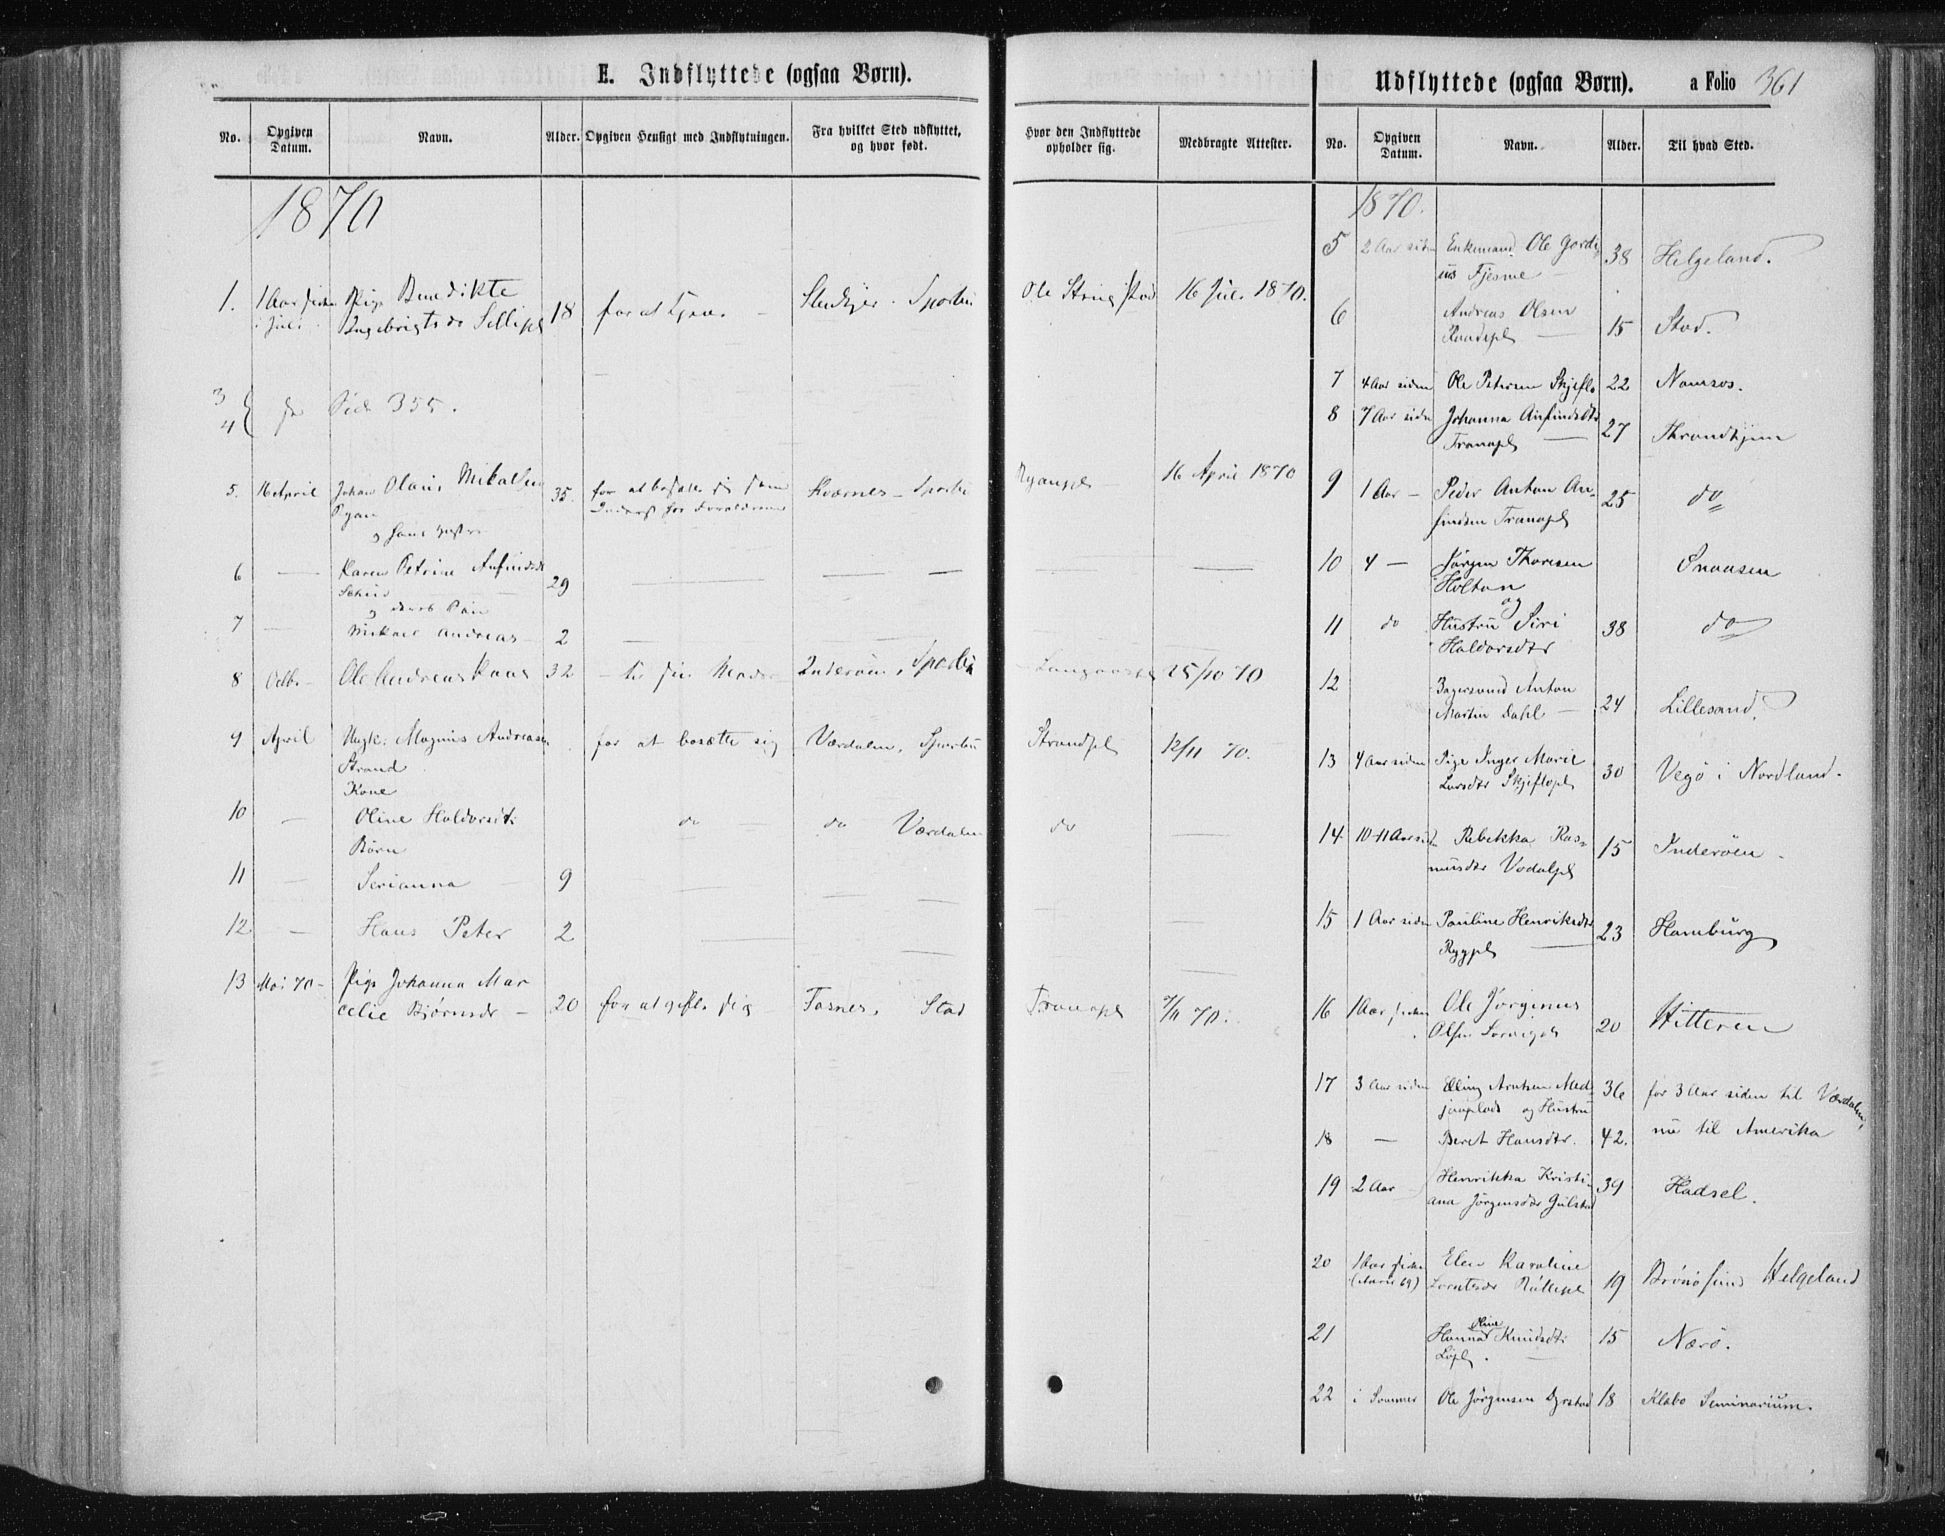 E. Indflyttede (ogsaa Børn).
No. Opgiven Datum. Navn. Alder. Opgiven Hensigt med Indflytningen. Fra hvilket Sted udflyttet, og hvor født. Hvor den Indflyttede opholder sig. Medbragte Attester.
1870
1. 1 Aar siden i Juli Pige Benedikte
Ingebrigtsdr 18 for at tjene Stenkjer Sparbu Ole 16 Juli 1870.
3
4 Side 355.
5. 16 April Johan Olaus Mikalsen 35. for at Kvarnes Sparbu Ryanpl 16 April 1870
Ryan
og hans
6 — Karen Petrine Anfindsdr 29
og deres
7 — Mikael Andreas 2
8 Octbr Ole Andreas Kaas 32 til sin Moder Inderøen, Sparbu 25/10 70
9 April Ungk. Magnus Andreasen for at bosætte sig Værdalen, Sparbu Strandpl 12/11 70.
Strand
Kone
10 — Oline Haldorsdt. do do Værdalen do
Børn
11 — Serianna 9
12 — Hans Peter 2
13 Mai 70 Pige Johanna Mar
celie Bjørnsdr 20 for at gifte sig Stod Tranapl 7/11 70.
Udflyttede (ogsaa Børn). a Folio 361
No. Opgiven Datum. Navn. Alder. Til hvad Sted.
1870.
5 2 Aar siden Enkemand Ole Gordi
us Fjesme 38 Helgeland.
6 Andreas Olsen
15 Stod.
7 4 Aar siden Ole Petersen Skjeflo 22 Namsos.
8 7 Aar siden Johanna Anfindsdtr
Tranapl 27 Throndhjem
9 1 Aar — Peder Anton An-
findsen Tranapl 25 do
10 4 — Jørgen Thoresen Snaasen
Holtan
og
11 do Hustru Siri 38 do
Haldorsdtr
12 Bagersvend Anton
Martin Dahl 24 Lillesand.
13 4 Aar siden Pige Inger Marit
Larsdtr Skjeflopl 30 Vegø i Nordland.
14 10-11 Aar sid. Rebekka Ras-
musdtr Vodalpl 15 Inderøen
15 1 Aar siden Pauline Henriksdtr
Ryggpl 23 Hamburg
16 1 Aar siden Ole Jørginus
Olsen 20 Hitteren
17 3 Aar siden Elling Arntsen Med
og Hustru 36 for 3 Aar siden til Værdalen,
18 — Beret Hansdtr. 42. nu til Amerika
19 2 Aar Henrikka Kristi-
ana Jørgensdtr Gulstad 39 Hadsel.
20 1 Aar siden Elen Karoline
Lorntsdr 19 Brønøsund Helgeland
21 Hanna Oline Knudsdt. 15 Nærø.
22 i Sommer Ole Jørgensen Dyrstad 18 Klæbo Seminarium.